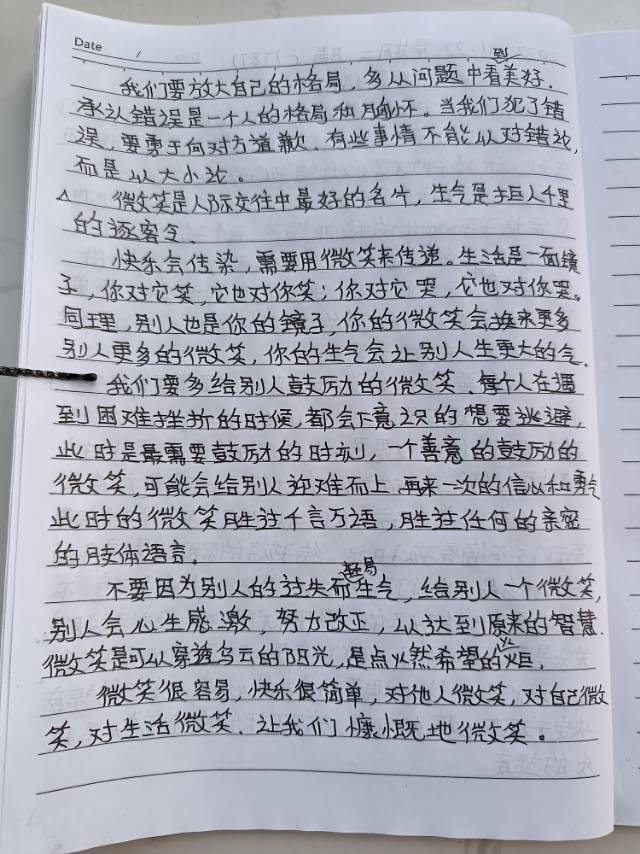 Date /
我们要放大自己的格局,多从问题中看到美好.
承认错误是一个人的格局和胸怀。当我们犯了错
误,要勇于向对方道歉.有些事情不能以对错论,
而是以大小论。
微笑是人际交往中最好的名片,生气是拒人千里
的逐客令.
快乐会传染,需要用微笑来传递。生活是一面镜
子,你对它笑,它也对你笑;你对它哭,它也对你哭。
同理,别人也是你的镜子,你的微笑会换来更多
别人更多的微笑,你的生气会让别人生更大的气.
我们要多给别人鼓励的微笑.每个人在遇
到困难挫折的时候,都会下意识的想要逃避,
此时是最需要鼓励的时刻,一个善意的鼓励的
微笑,可能会给别人迎难而上再来一次的信心和勇气
此时的微笑胜过千言万语,胜过任何的亲密
的肢体语言.
不要因为别人的过失而轻易生气,给别人一个微笑,
别人会心生感激,努力改正,以达到原来的智慧.
微笑是可以穿越乌云的阳光,是点燃希望的火炬,
微笑很容易,快乐很简单,对他人微笑,对自己微
笑,对生活微笑.让我们慷慨地微笑。